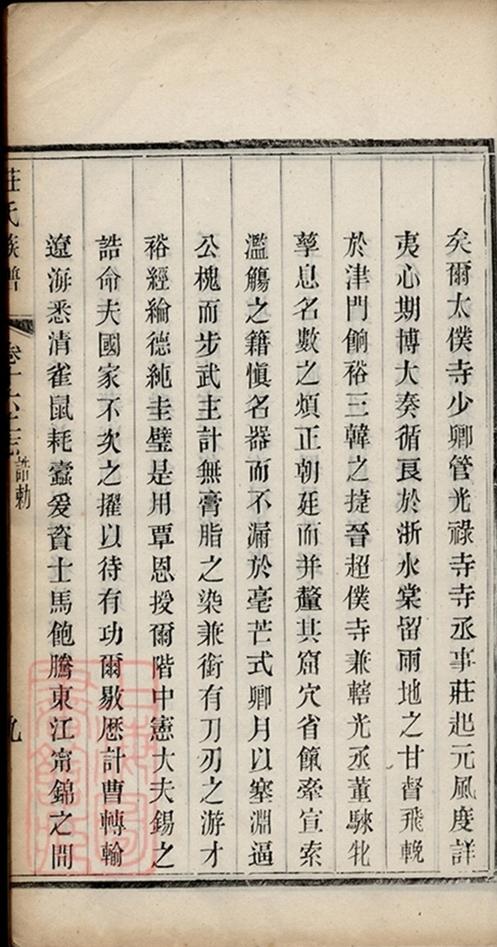 矣爾太僕寺少卿管光祿寺寺丞事莊起元風度詳
夷心期博大奏循良於浙水棠留雨地之甘督飛輓
於津門餉裕三韓之捷晉超僕寺兼轄光丞董騋牝
孳息名數之煩正朝廷而并釐其窟穴省餼牽宣索
濫觴之籍慎名器而不漏於毫芒式卿月以塞淵逼
公槐而步武主計無膏脂之染兼銜有刀刃之游才
裕經綸德純圭璧是用覃恩授爾階中憲大夫錫之
誥命夫國家不次之擢以待有功爾敭歷計曹轉輸
遼海悉清雀鼠耗蠹爰資士馬飽騰東江甯錦之間
莊氏族譜
誥勅
九